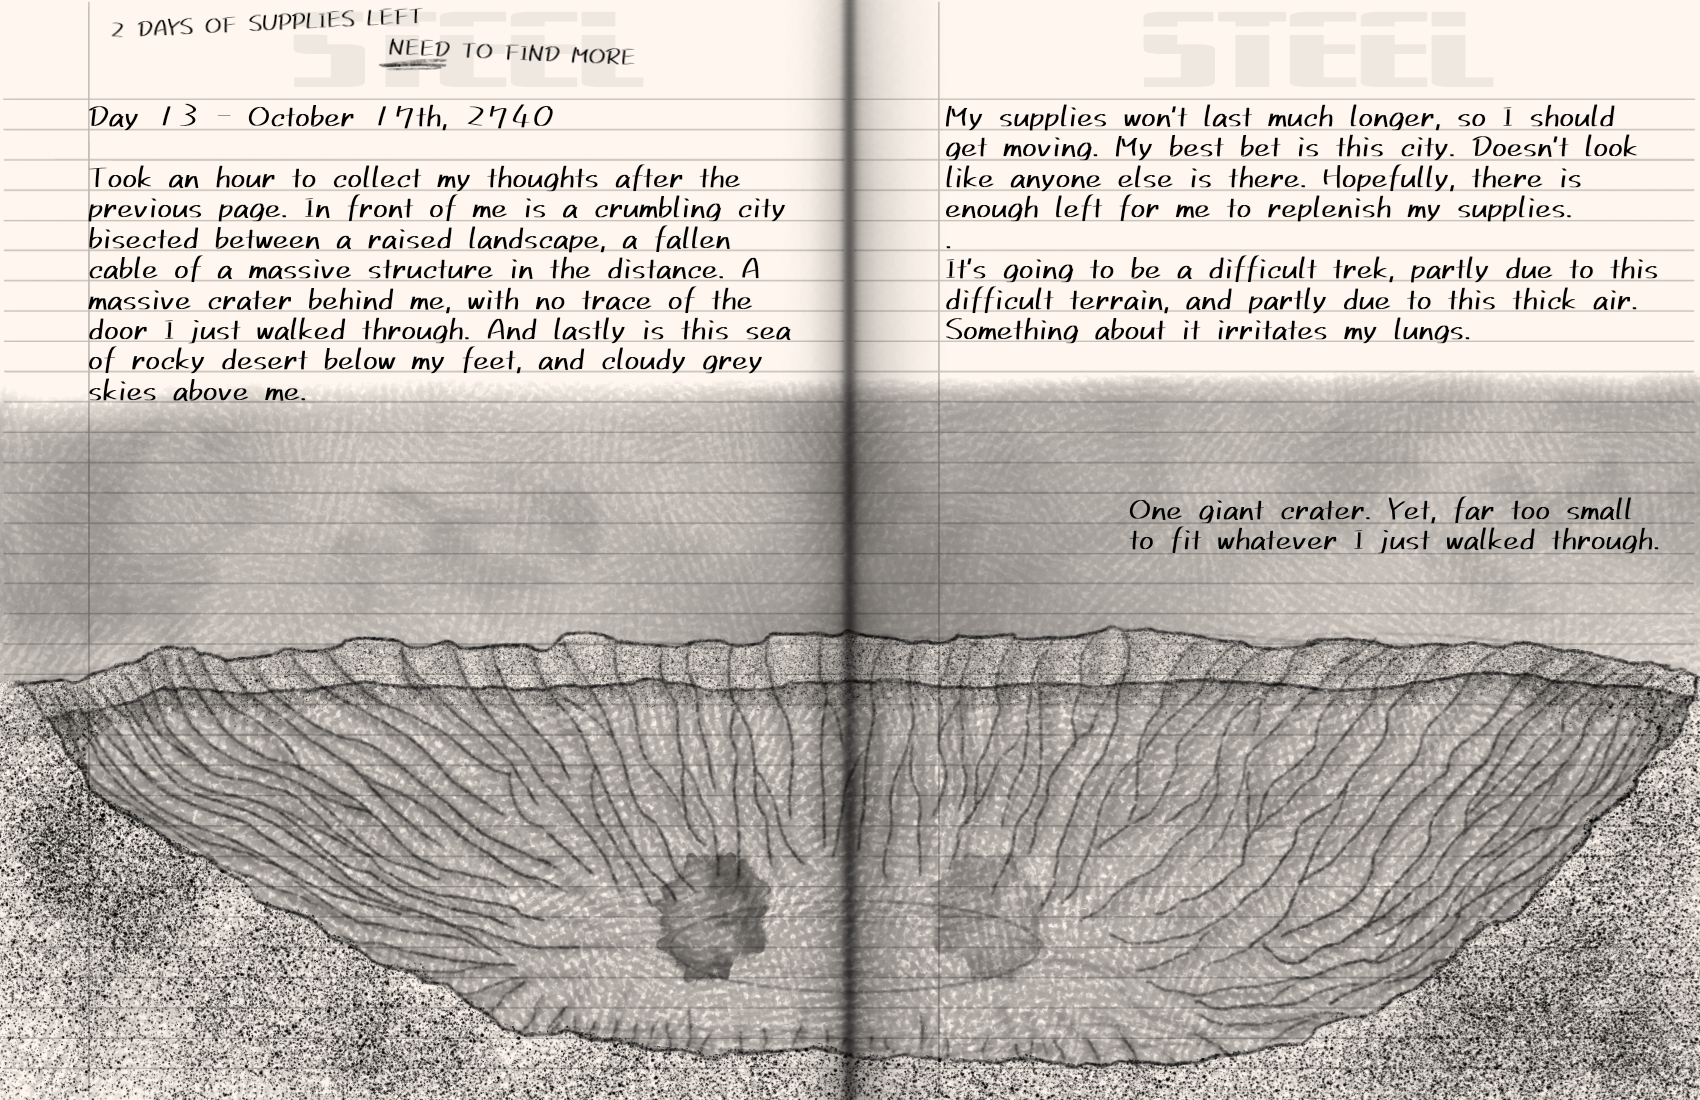 STEEL
2 DAYS OF SUPPLIES LEFT
NEED TO FIND MORE
Day 13 - October 17th, 2740
Took an hour to collect my thoughts after the
previous page. In front of me is a crumbling city
bisected between a raised landscape, a fallen
cable of a massive structure in the distance. A
massive crater behind me, with no trace of the
door I just walked through. And lastly is this sea
of rocky desert below my feet, and cloudy grey
skies above me.
STEEL
My supplies won't last much longer, so I should
get moving. My best bet is this city. Doesn't look
like anyone else is there. Hopefully, there is
enough left for me to replenish my supplies.
.
It's going to be a difficult trek, partly due to this
difficult terrain, and partly due to this thick air.
Something about it irritates my lungs.
One giant crater. Yet, far too small
to fit whatever I just walked through.